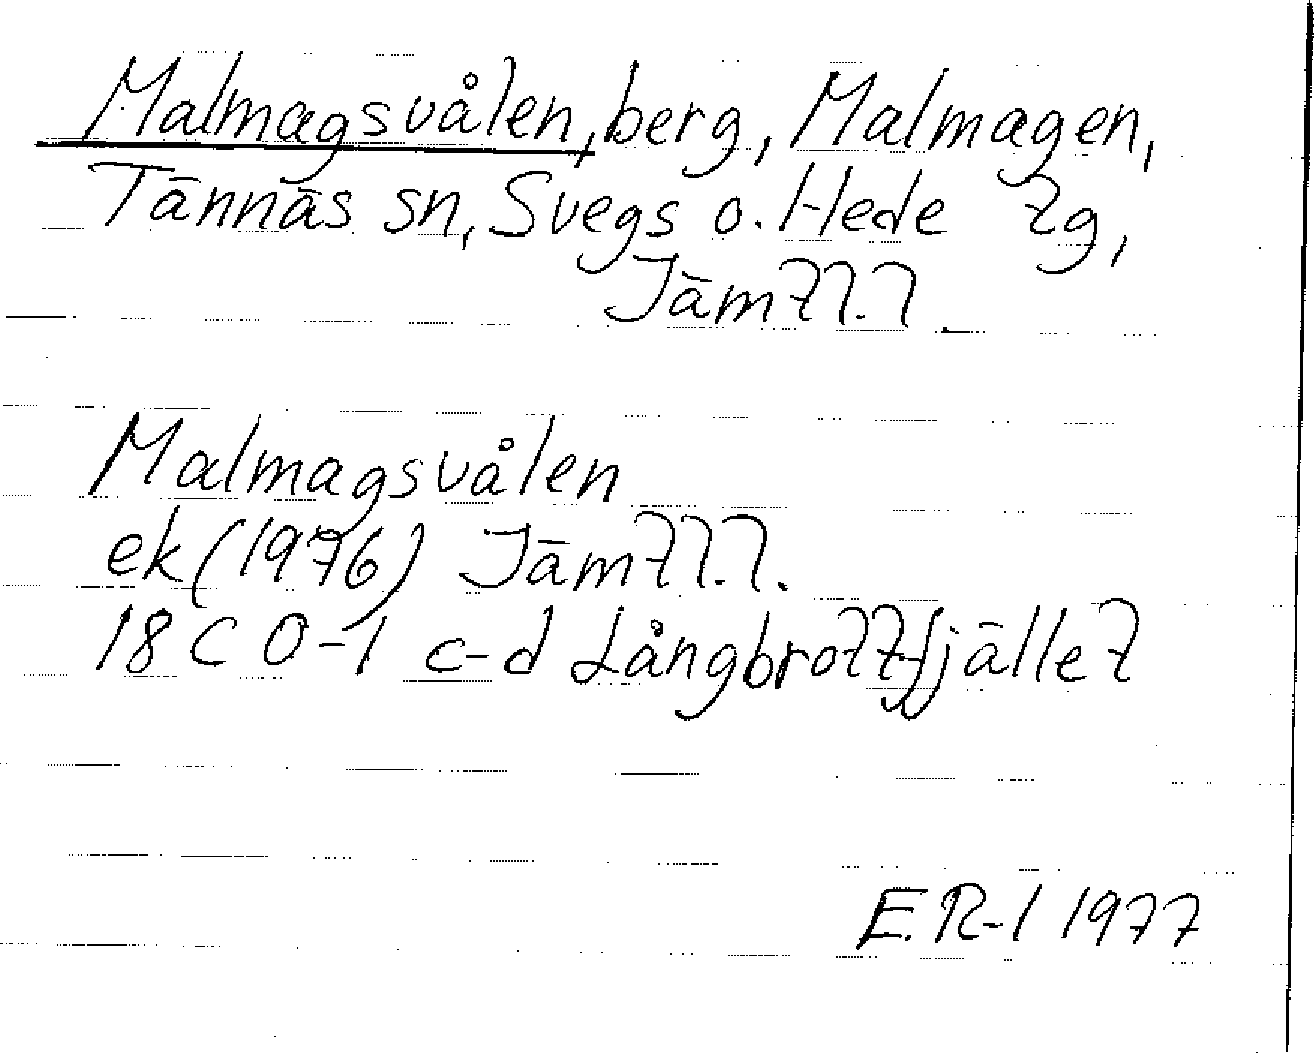 Malmagsvålen, berg, Malmagen,
Tännäs sn, Svegs o. Hede tg,
Jämtl. l.
Malmagsvålen
ek (1976) Jämtl. l.
18 C 0-1 c-d Långbrottfjället
E. R-l 1977